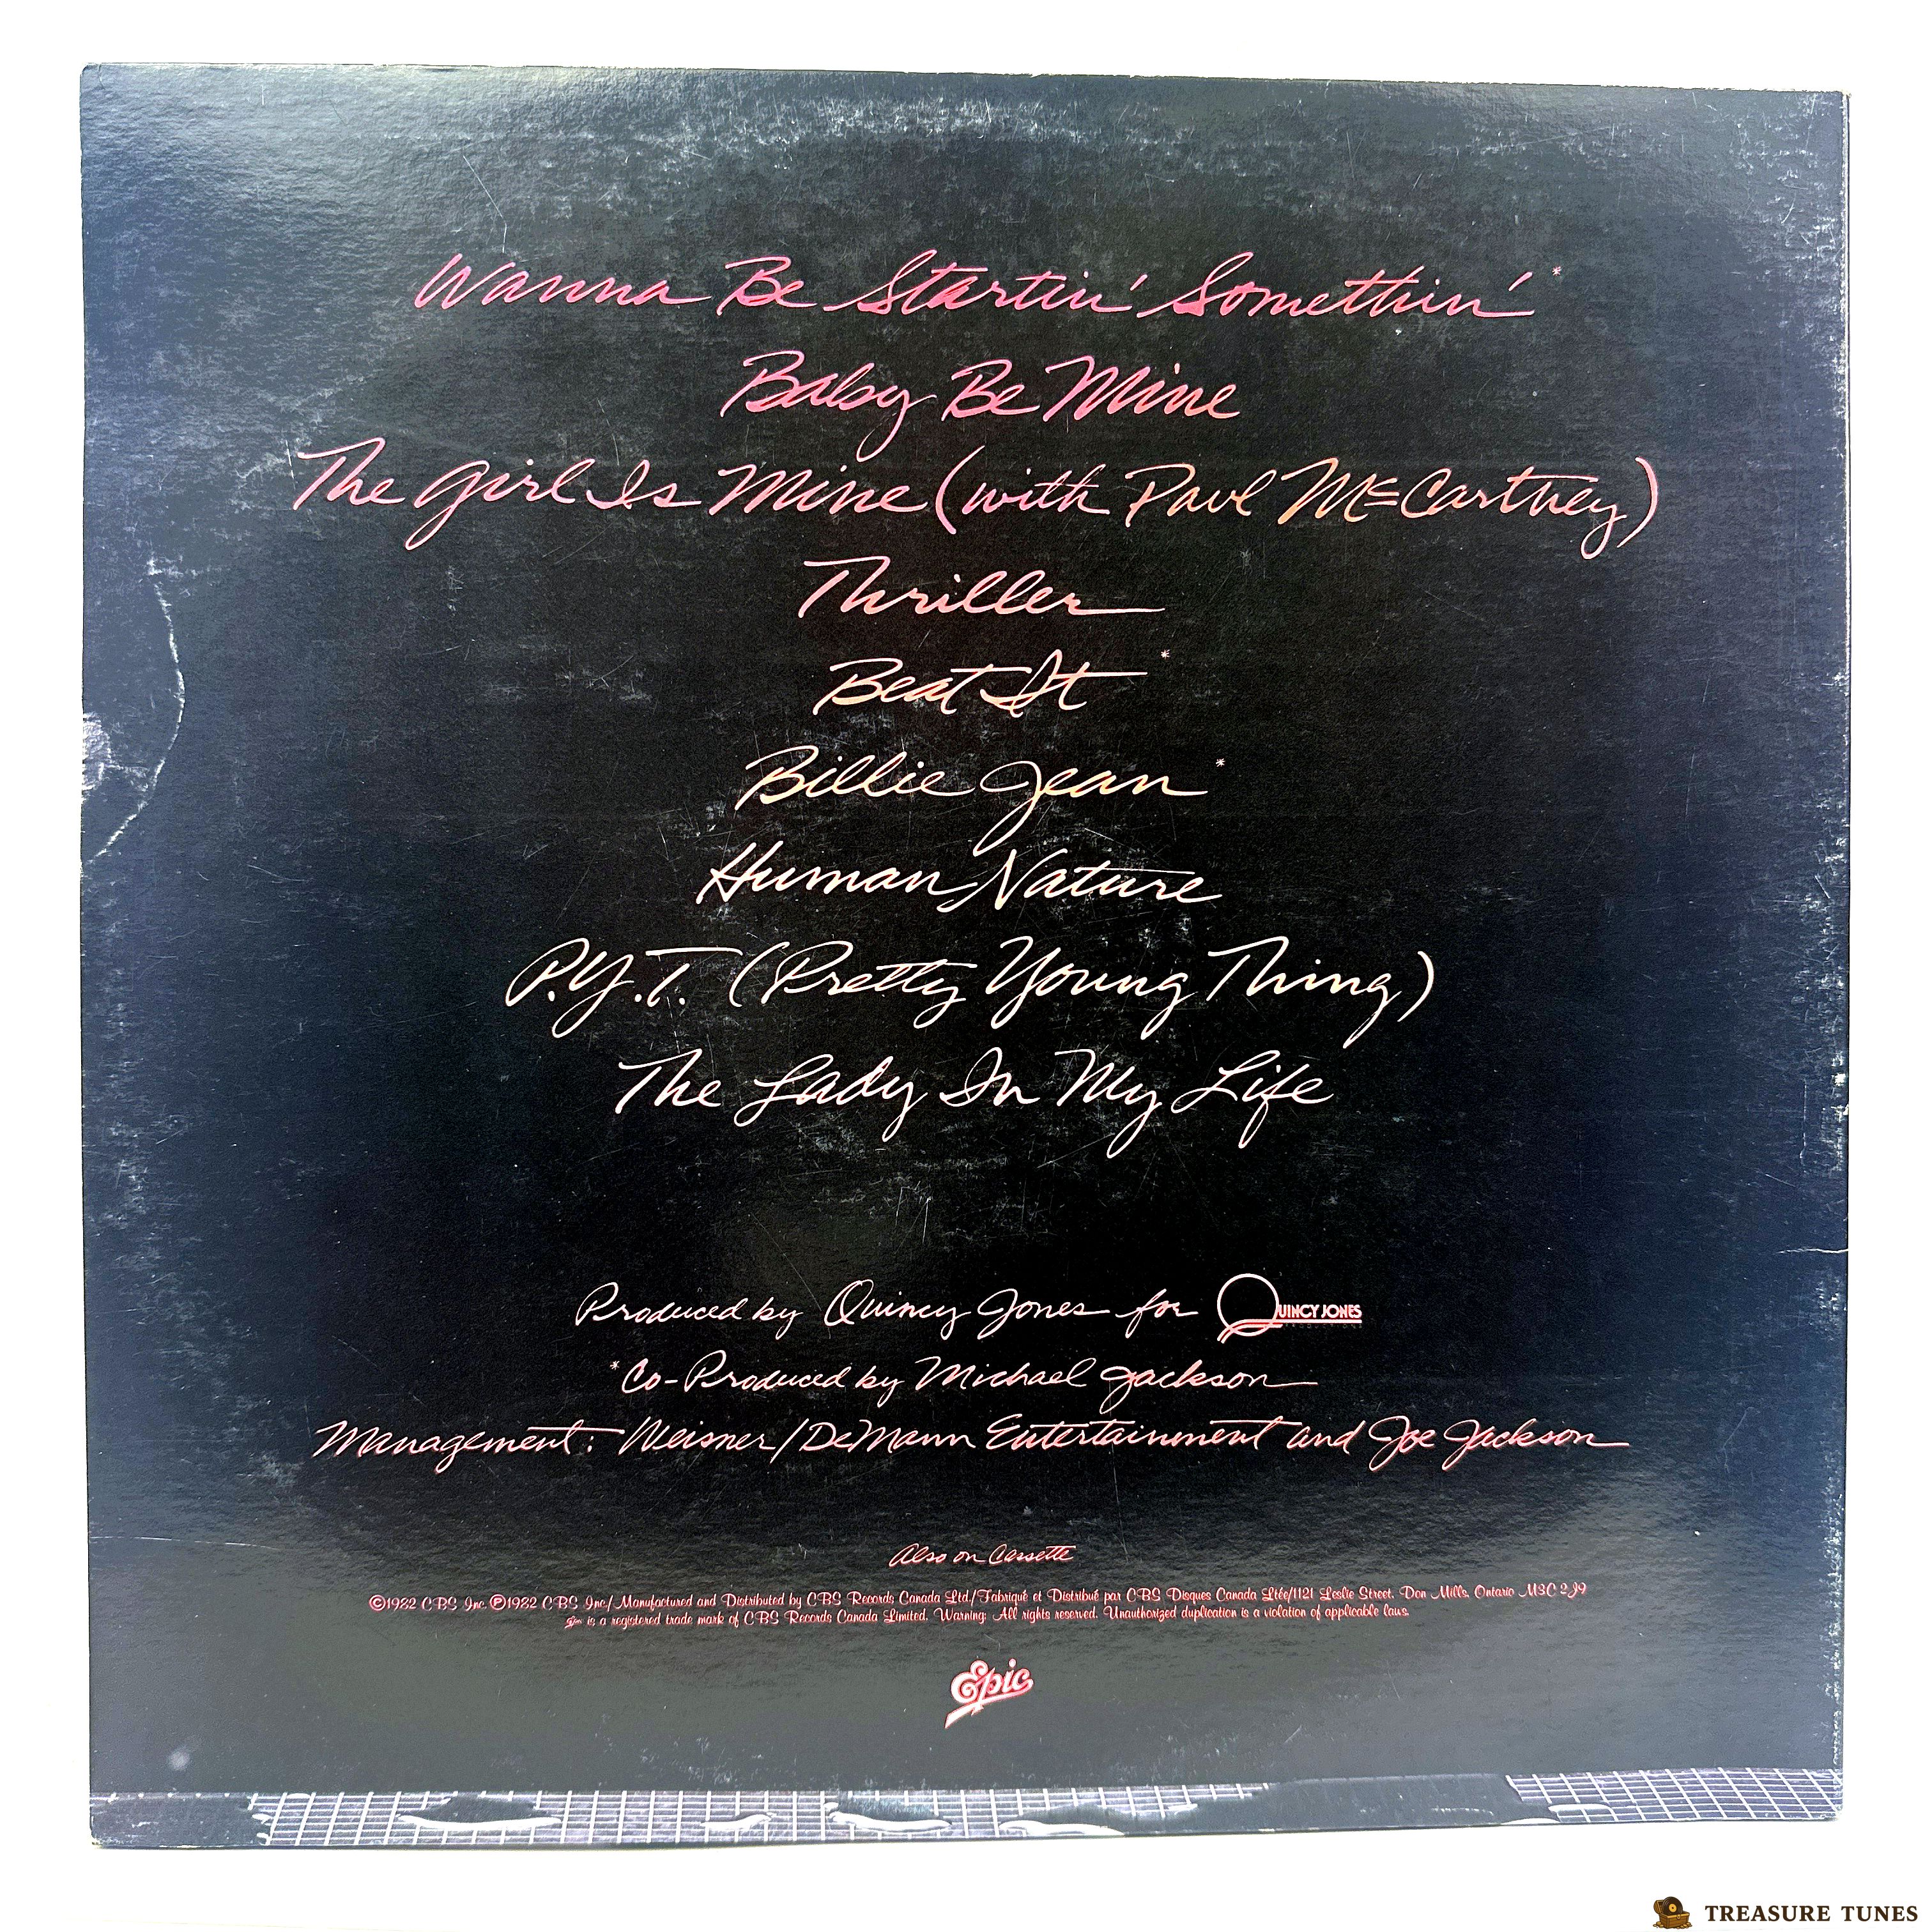 Wanna Be Startin' Somethin'*
Baby Be Mine
The Girl Is Mine (with Paul McCartney)
Thriller
Beat It*
Billie Jean*
Human Nature
P.Y.T. (Pretty Young Thing)
The Lady In My Life
Produced by Quincy Jones for QUINCY JONES
PRODUCTIONS
*Co-Produced by Michael Jackson
Management: Weisner/DeMann Entertainment and Joe Jackson
Also on Cassette
©1982 CBS Inc. ℗1982 CBS Inc./Manufactured and Distributed by CBS Records Canada Ltd./Fabriqué et Distribué par CBS Disques Canada Ltée/1121 Leslie Street, Don Mills, Ontario M3C 2J9
is a registered trade mark of CBS Records Canada Limited. Warning: All rights reserved. Unauthorized duplication is a violation of applicable laws.
Epic
TREASURE TUNES